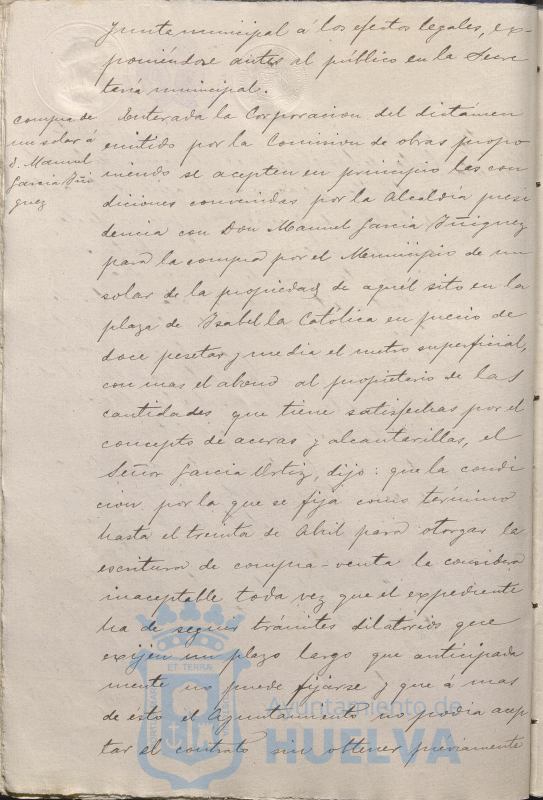 Junta municipal á los efectos legales, ex-
poniéndose antes al público en la Secre
taría municipal.
compra de
un solar á
D. Manuel
Garcia Iñi
guez
Enterada la Corporacion del dictámen
emitido por la Comision de obras propo
niendo se acepten en principio las con
diciones convenidas por la Alcaldía presi
dencia con Don Manuel Garcia Iñiguez
para la compra por el Municipio de un
solar de la propiedad de aquél sito en la
plaza de Isabel la Católica en precio de
doce pesetas y media el metro superficial,
con mas el abono al propietario de las
cantidades que tiene satisfechas por el
concepto de aceras y alcantarillas, el
Señor Garcia Ortiz, dijo: que la condi
cion por la que se fija como término
hasta el treinta de Abril para otorgar la
escritura de compra-venta la considera
inaceptable toda vez que el expediente
ha de seguir trámites dilatorios que
exijen un plazo largo que anticipada
mente no puede fijarse y que á mas
de ésto el Ayuntamiento no podia acep
tar el contrato sin obtener previamente
ET TERRA
Ayuntamiento de
HUELVA